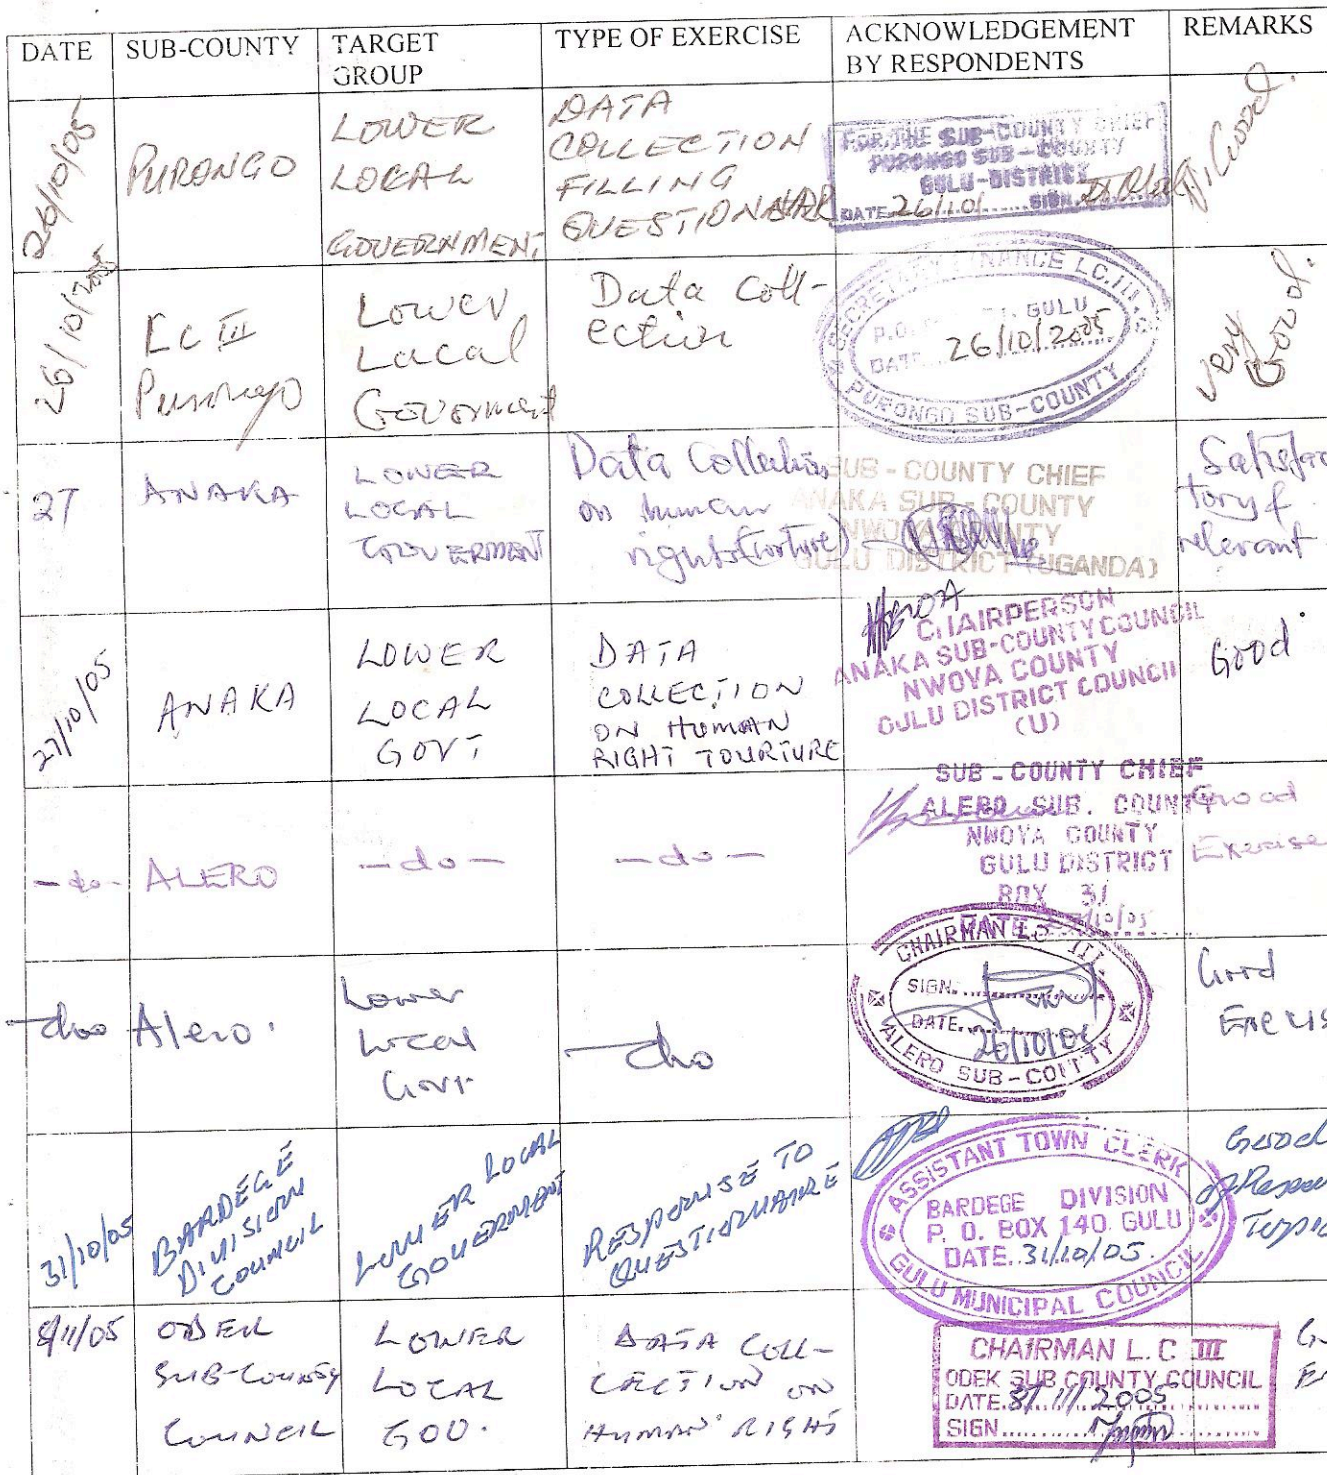 DATE
SUB-COUNTY
TARGET
GROUP
TYPE OF EXERCISE
ACKNOWLEDGEMENT
BY RESPONDENTS
REMARKS
26/10/05
PURONGO
LOWER
LOCAL
GOVERNMENT
DATA
COLLECTION
FILLING
FOR THE SUB-COUNTY CHIEF
PURONGO SUB-COUNTY
GULU-DISTRICT
DATE 26/10/ SIGN
V. Good.
26/10/2005
LC III
Purongo
Lower
Local
Goverment
Data Coll-
ection
SECRETARY FINANCE LC.III
P.O. GULU
DATE 26/10/2005
PURONGO SUB-COUNTY
very
Good.
27
ANAKA
LOWER
LOCAL
GOVERMENT
Data Collection
on human
rights (torture)
SUB-COUNTY CHIEF
ANAKA SUB-COUNTY
NWOYA COUNTY
GULU DISTRICT (UGANDA)
Satisfac
tory &
relevant
27/10/05
ANAKA
LOWER
LOCAL
GOVT
DATA
COLLECTION
ON HUMAN
RIGHT TOURTURE
CHAIRPERSON
ANAKA SUB-COUNTY COUNCIL
NWOYA COUNTY
GULU DISTRICT COUNCIL
(U)
Good
-do-
ALERO
-do-
-do-
SUB-COUNTY CHIEF
ALERO SUB. COUNTY
NWOYA COUNTY
GULU DISTRICT
BOX 31
DATE /10/05
Good
Exercise
Alero.
Lower
Local
Govt
CHAIRMAN LC III.
SIGN
DATE 26/10/05
ALERO SUB-COUTTY
Good
31/10/05
BARDEGE
DIVISION
COUNCIL
LOWER LOCAL
GOVERNMENT
RESPONSE TO
QUESTIONNAIRE
ASSISTANT TOWN CLERK
BARDEGE DIVISION
P. O. BOX 140 GULU
DATE. 31/10/05.
GULU MUNICIPAL COUNCIL
Good
8/11/05
ODEK
SUB-COUNTY
COUNCIL
LOWER
LOCAL
GOV.
DATA COLL-
ECTION ON
HUMAN RIGHT
CHAIRMAN L. C III
ODEK SUB COUNTY COUNCIL
DATE. 8/11/2005
SIGN